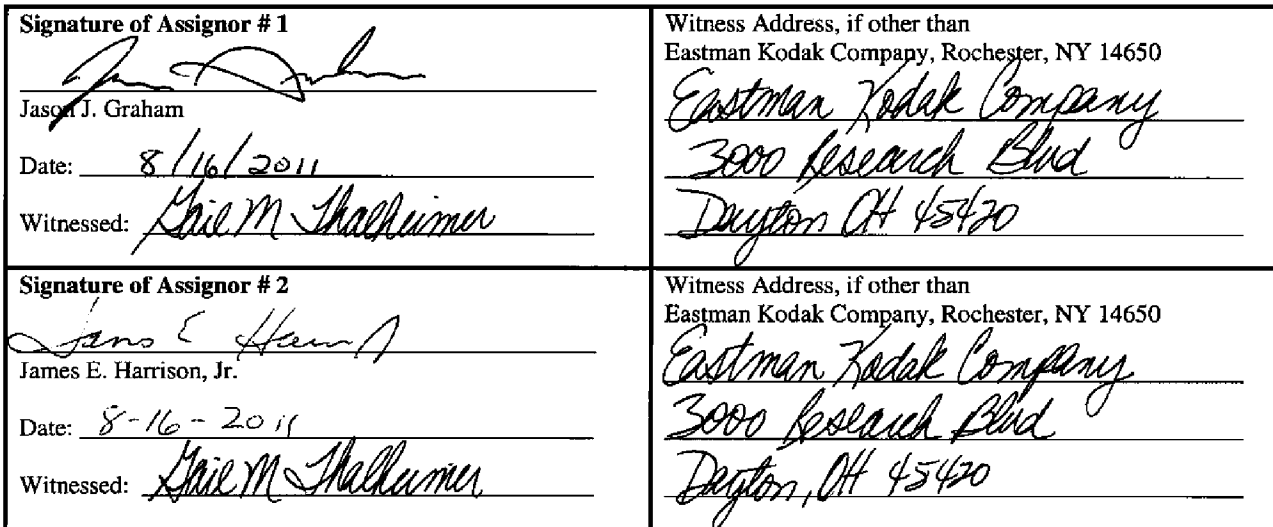 Signature of Assignor # 1
Jason J. Graham
Date: 8/16/2011
Witnessed: Gail M Thalheimer
Witness Address, if other than
Eastman Kodak Company, Rochester, NY 14650
Eastman Kodak Company
3000 Research Blvd
Dayton OH 45420
Signature of Assignor # 2
James E Harrison Jr
James E. Harrison, Jr.
Date: 8-16-2011
Witnessed: Gail M Thalheimer
Witness Address, if other than
Eastman Kodak Company, Rochester, NY 14650
Eastman Kodak Company
3000 Research Blvd
Dayton, OH 45420